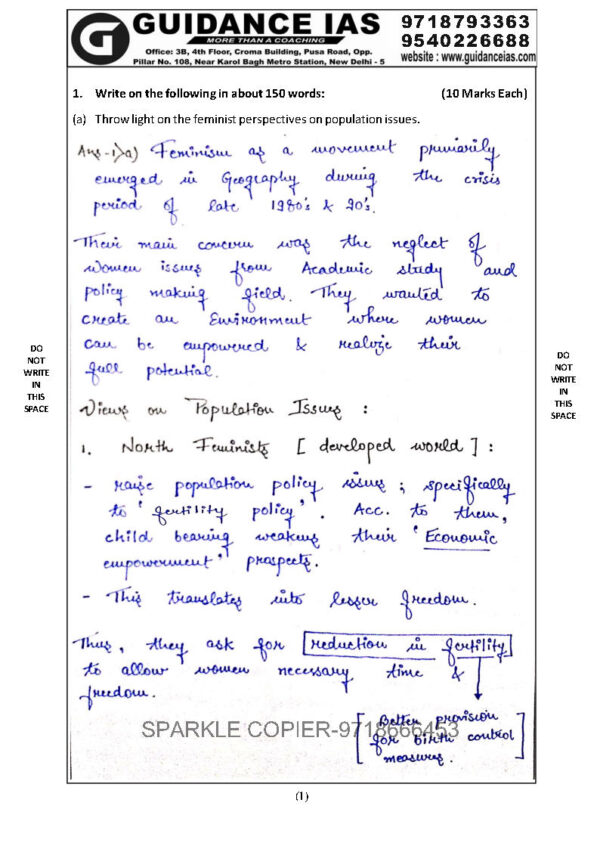 GUIDANCE IAS
MORE THAN A COACHING
Office: 3B, 4th Floor, Croma Building, Pusa Road, Opp.
Pillar No. 108, Near Karol Bagh Metro Station, New Delhi - 5
9718793363
9540226688
website : www.guidanceias.com
1. Write on the following in about 150 words: (10 Marks Each)
(a) Throw light on the feminist perspectives on population issues.
Ans-1>a) Feminism as a movement primarily
emerged in Geography during the crisis
period of late 1980's & 90's.
Their main concern was the neglect of
women issues from Academic study and
policy making field. They wanted to
create an Environment where women
can be empowered & realize their
full potential.
Views on Population Issues :
1. North Feminists [ developed world ] :
- raise population policy issues ; specifically
to 'fertility policy'. Acc. to them,
child bearing weakens their 'Economic
empowerment' prospects.
- This translates into lesser freedom.
Thus, they ask for reduction in fertility
to allow women necessary time &
freedom.
[ Better provision
for birth control
measures. ]
SPARKLE COPIER-9718666453
(1)
DO
NOT
WRITE
IN
THIS
SPACE
DO
NOT
WRITE
IN
THIS
SPACE